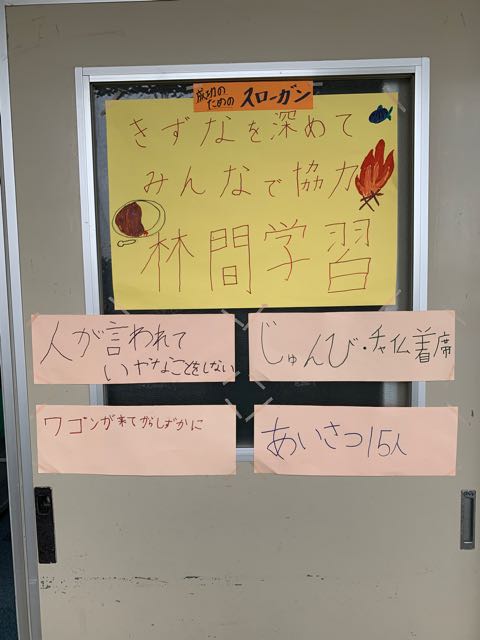 成功の
ための スローガン
きずなを深めて
みんなで協力
林間学習
人が言われて
いやなことをしない
じゅんび・チャイム着席
ワゴンがきてからしずかに
あいさつ15人